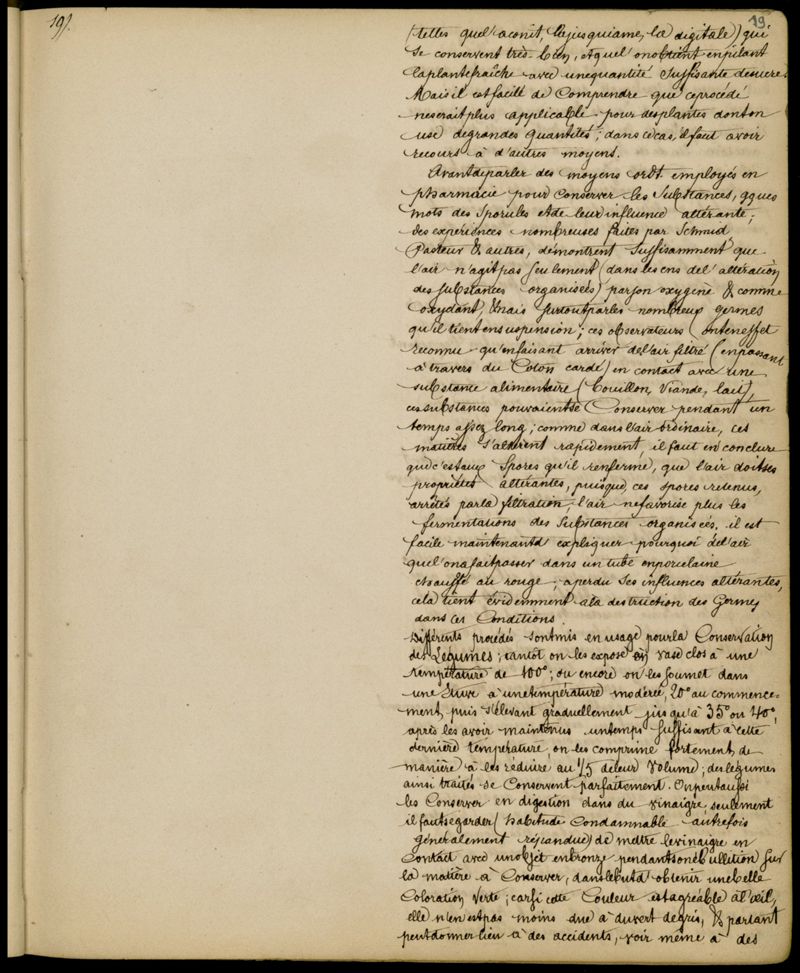 19.
19.
(telles quel'aconit, la jusquiame, la digitale) qui
se conservent très-bien, et quel'onobtient enpilant
laplante fraîche avec unequantité suffisante desucre
Mais il est facile de Comprendre que ceprocédé
neseraitplus applicable pour desplantes donton
use degrandes quantités; dans cecas, il faut avoir
recours à d'autres moyens.
Avant deparler des moyens ordt employés en
pharmacie pour conserver les substances, qques
mots des Sporules et de leur influence altérante;
des expériences nombreuses faites par Schmid,
Pasteur & autres, démontrent suffisamment que
l'air n'agit pas seulement (dans les cas del'altération
des substances organisées) parson oxygène & comme
oxydant, mais surtout parles nombreux germes
qu'il tient ensuspension; ces observateurs ont eneffet
reconnu qu'enfaisant arriver del'air filtré (enpassant
à travers du Coton cardé) en contact avec une
substance alimentaire (bouillon, viande, lait),
ces substances pouvaient se Conserver pendant un
temps assez long; comme dans l'air ordinaire, ces
matières s'altèrent rapidement, il faut en conclure
que c'est aux Spores qu'il renferme, que l'air doit ses
propriétés altérantes, puisque, ces spores retenus,
arrêtés parla filtration, l'air nefavorise plus les
fermentations des substances organisées. il est
facile maintenant d'expliquer pourquoi del'air
quel'on a fait passer dans un tube enporcelaine
chauffé au rouge, a perdu ses influences altérantes,
cela tient évidemment à la destruction des Germes
dans ces Conditions.
Différents procédés sontmis en usage pour la Conservation
des Légumes; tantôt on les expose en vase clos à une
température de 100°; ou encore on les soumet dans
une Etuve à unetempérature modérée, 20° au commence-
ment, puis s'élevant graduellement jusqu'à 35° ou 40°,
après les avoir maintenus untemps suffisant à cette
dernière température, on les comprime fortement, de
manière à les réduire au 1/5 deleur volume; des légumes
ainsi traités se Conservent parfaitement. On peut aussi
les Conserver en digestion dans du vinaigre, seulement
il faut segarder (habitude Condamnable autrefois
généralement répandue) de mettre le vinaigre en
Contact avec unobjet enbronze pendant son ébullition sur
la matière à Conserver, dans le but d'obtenir une belle
Coloration verte; car si cette Couleur est agréable à l'œil,
elle n'en est pas moins due à du vert degris, & partant
peut donner lieu à des accidents, voir même à des